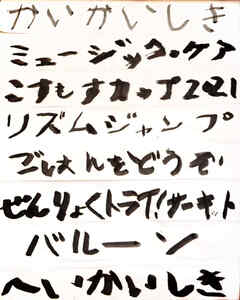 かいかいしき
ミュージックケア
こすもすカップ2021
リズムジャンプ
ごはんをどうぞ
ぜんりょくトライ!サーキット
バルーン
へいかいしき